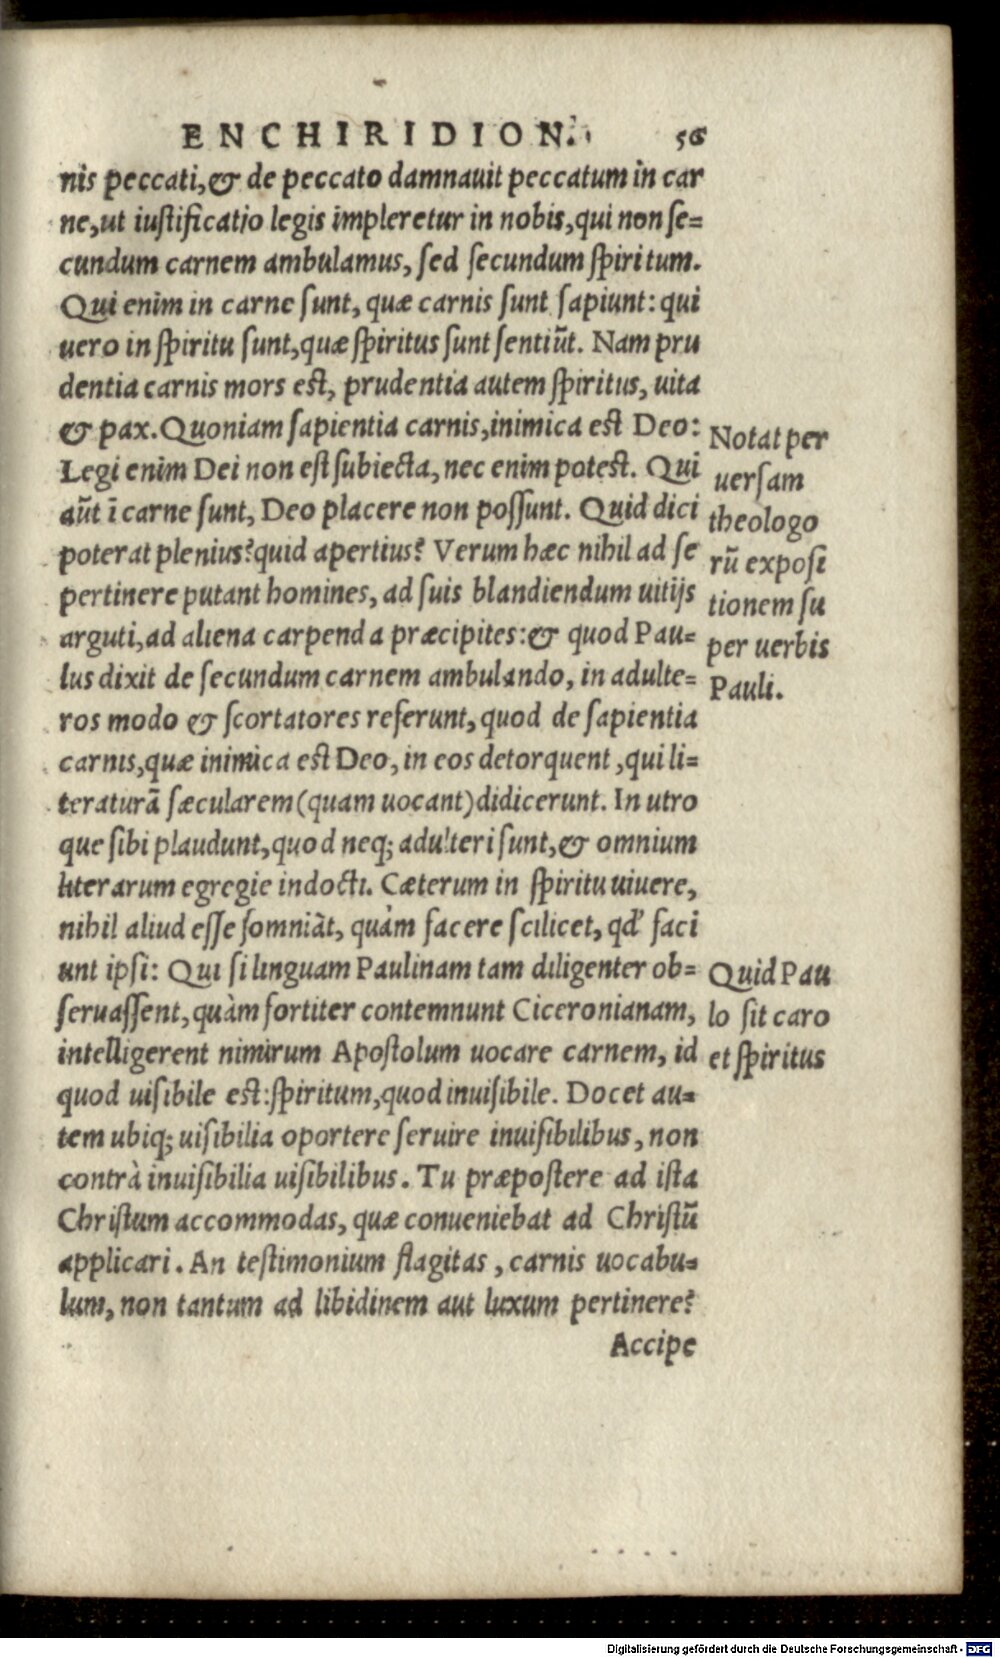 ENCHIRIDION. 56
nis peccati, & de peccato damnauit peccatum in car
ne, ut iustificatio legis impleretur in nobis, qui non se=
cundum carnem ambulamus, sed secundum spiritum.
Qui enim in carne sunt, quæ carnis sunt sapiunt: qui
uero in spiritu sunt, quæ spiritus sunt sentiūt. Nam pru
dentia carnis mors est, prudentia autem spiritus, uita
& pax. Quoniam sapientia carnis, inimica est Deo:
Legi enim Dei non est subiecta, nec enim potest. Qui
aūt ī carne sunt, Deo placere non possunt. Quid dici
poterat plenius? quid apertius? Verum hæc nihil ad se
pertinere putant homines, ad suis blandiendum uitijs
arguti, ad aliena carpenda præcipites: & quod Pau=
lus dixit de secundum carnem ambulando, in adulte=
ros modo & scortatores referunt, quod de sapientia
carnis, quæ inimica est Deo, in eos detorquent, qui li=
teraturā sæcularem (quam uocant) didicerunt. In utro
que sibi plaudunt, quod neq; adulteri sunt, & omnium
literarum egregie indocti. Cæterum in spiritu uiuere,
nihil aliud esse somniāt, quàm facere scilicet, qd' faci
unt ipsi: Qui si linguam Paulinam tam diligenter ob=
seruassent, quàm fortiter contemnunt Ciceronianam,
intelligerent nimirum Apostolum uocare carnem, id
quod uisibile est: spiritum, quod inuisibile. Docet au=
tem ubiq; uisibilia oportere seruire inuisibilibus, non
contrà inuisibilia uisibilibus. Tu præpostere ad ista
Christum accommodas, quæ conueniebat ad Christū
applicari. An testimonium flagitas, carnis uocabu=
lum, non tantum ad libidinem aut luxum pertinere?
Accipe
Notat per
uersam
theologo
rū exposi
tionem su
per uerbis
Pauli.
Quid Pau
lo sit caro
et spiritus
Digitalisierung gefördert durch die Deutsche Forschungsgemeinschaft - DFG